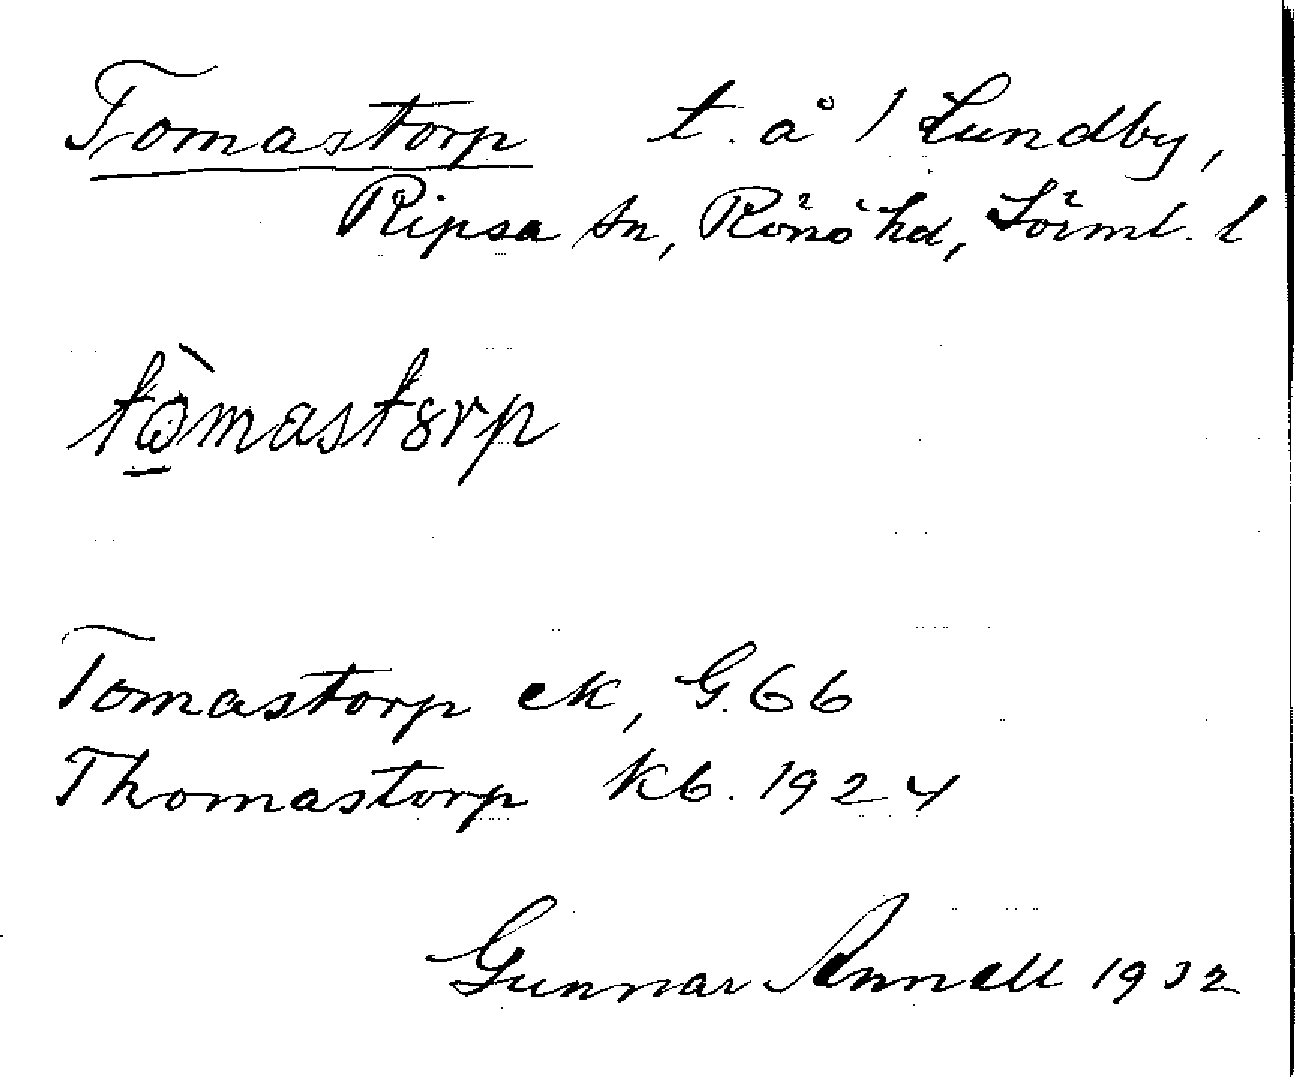 Tomastorp t. å 1 Lundby,
Ripsa sn, Rönö hd, Sörml. l
tòmastorp
Tomastorp ek, G. 66
Thomastorp kb. 1924
Gunnar Annell 1932